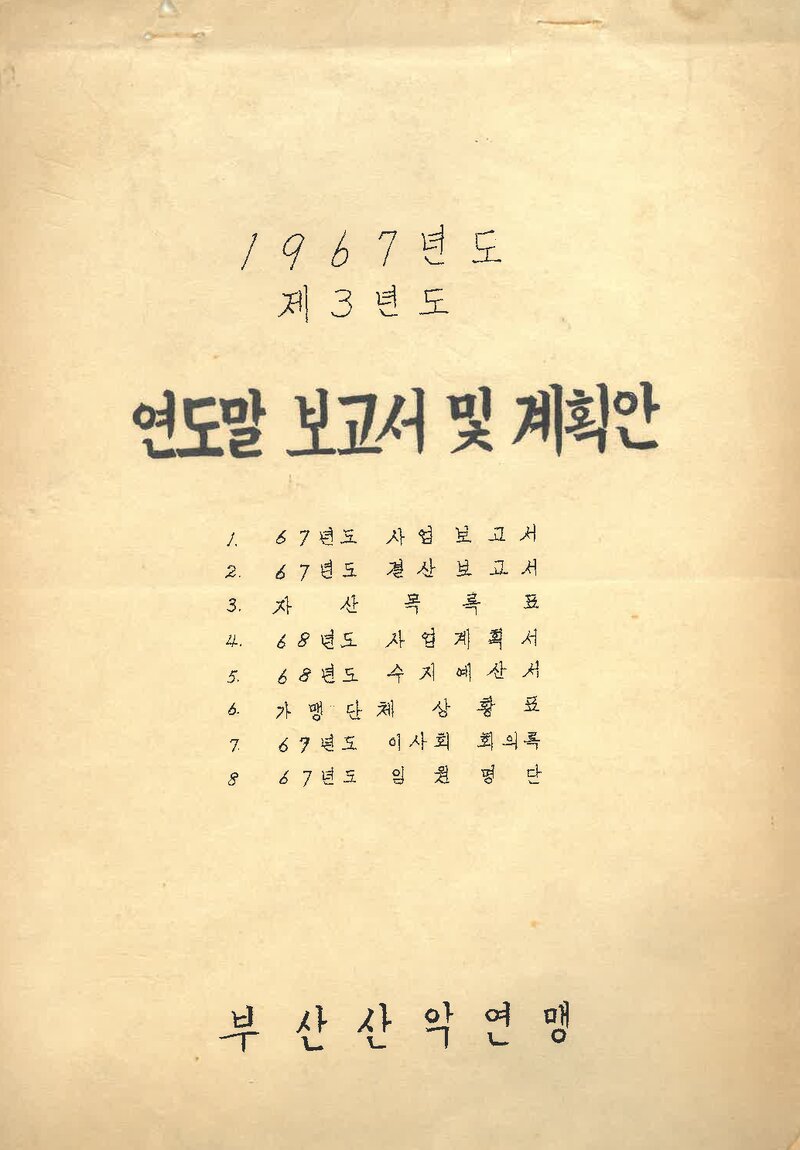 1967년도
제3년도
연도말 보고서 및 계획안
1. 67년도 사업보고서
2. 67년도 결산보고서
3. 자산목록표
4. 68년도 사업계획서
5. 68년도 수지예산서
6. 가맹단체 상황표
7. 67년도 이사회 회의록
8 67년도 임원명단
부산산악연맹